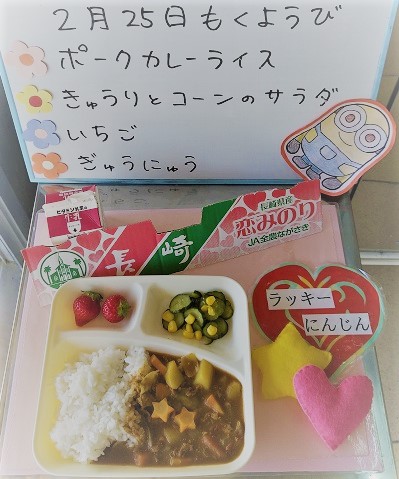 2月25日もくようび
ポークカレーライス
きゅうりとコーンのサラダ
いちご
ぎゅうにゅう
長崎
長崎県産
恋みのり
JA全農ながさき
ラッキー
にんじん